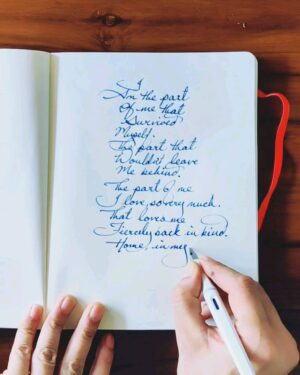 I
Am the part
Of me that
Survived
Myself.
The part that
Wouldn't leave
Me behind.
The part of me
I love, so very much.
That loves me
Fiercely back in kind.
Home, in my